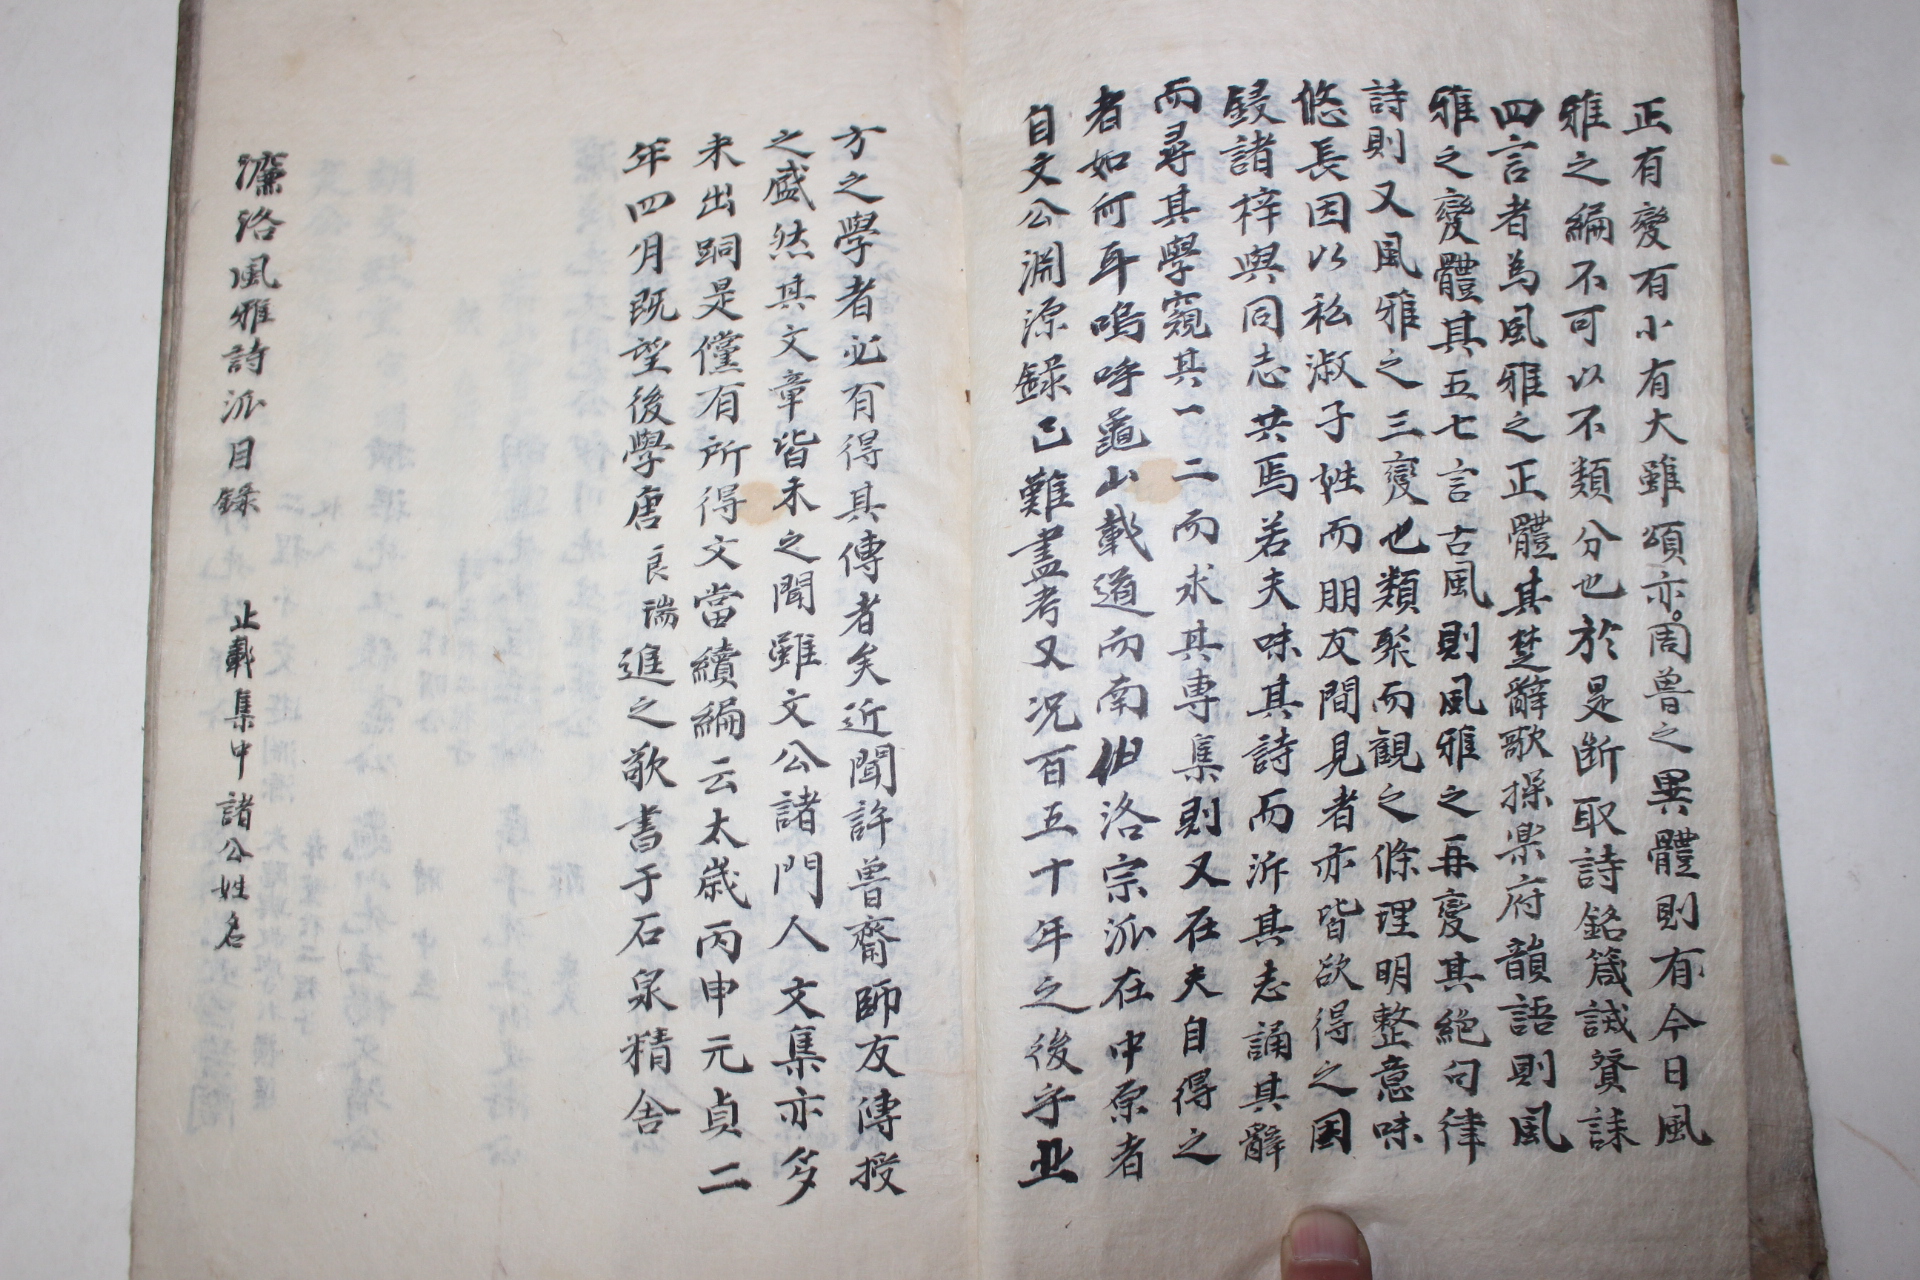 正有變有小有大雖頌亦周魯之異體則有今日風
雅之編不可以不類分也於是斷取詩銘箴誡贊誄
四言者為風雅之正體其楚辭歌操樂府韻語則風
雅之變體其五七言古風則風雅之再變其絕句律
詩則又風雅之三變也類聚而觀之條理明整意味
悠長因以私淑子姓而朋友間見者亦皆欲得之因
鋟諸梓與同志共焉若夫味其詩而泝其志誦其辭
而尋其學窺其一二而求其專集則又在夫自得之
者如何耳嗚呼龜山載道而南伊洛宗派在中原者
自文公淵源錄已難盡考又况百五十年之後乎北
方之學者必有得其傳者矣近聞許魯齋師友傳授
之盛然其文章皆未之聞雖文公諸門人文集亦多
未出詞是儻有所得文當續編云太歲丙申元貞二
年四月既望後學唐良瑞進之敬書于石泉精舍
濂洛風雅詩派目錄 止載集中諸公姓名